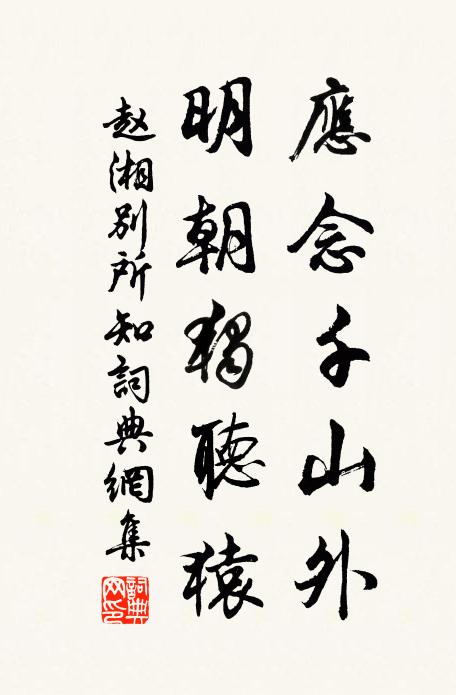 應念千山外
明朝獨聽猿
赵湘別所知詞典網集
詞典
网印